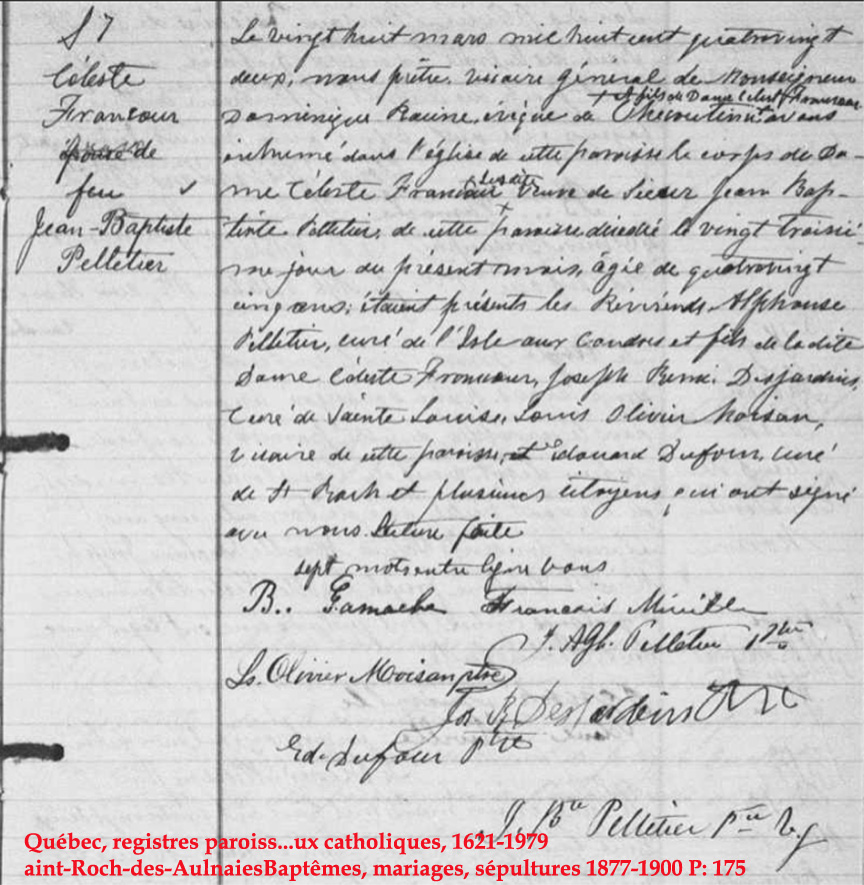 S 7
Céleste
Francour
épouse de
feu
Jean-Baptiste
Pelletier
Le vingt huit mars mil huit cent quatrevingt
deux, nous prêtre, vicaire général de Monseigneur
+ et fils de Dame Celeste Francoeur
Dominique Racine, évêque de Chicoutimi avons
inhumé dans l'église de cette paroisse le corps de Da-
me Céleste Francour Veuve de Sieur Jean Bap-
tiste Pelletier, de cette paroisse décédée le vingt troisiè
me jour du présent mois, âgée de quatrevingt
cinq ans; étaient présents les Révérends Alphonse
Pelletier, curé de l'Isle aux Coudres et fils de la dite
Dame Céleste Francour, Joseph Remi Desjardins,
Curé de Sainte Louise, Louis Olivier Moisan,
vicaire de cette paroisse, et Edouard Dufour, curé
de St Roch et plusieurs citoyens, qui ont signé
avec nous. Lecture faite
sept mots entre ligne bons
B.. Gamache François Miville
J. Alph. Pelletier Ptre
Ls. Olivier Moisan ptre
Jos R Desjardins Ptre
Ed. Dufour Ptre
J. Bte Pelletier Ptre V.g
Québec, registres paroiss...ux catholiques, 1621-1979
aint-Roch-des-AulnaiesBaptêmes, mariages, sépultures 1877-1900 P: 175